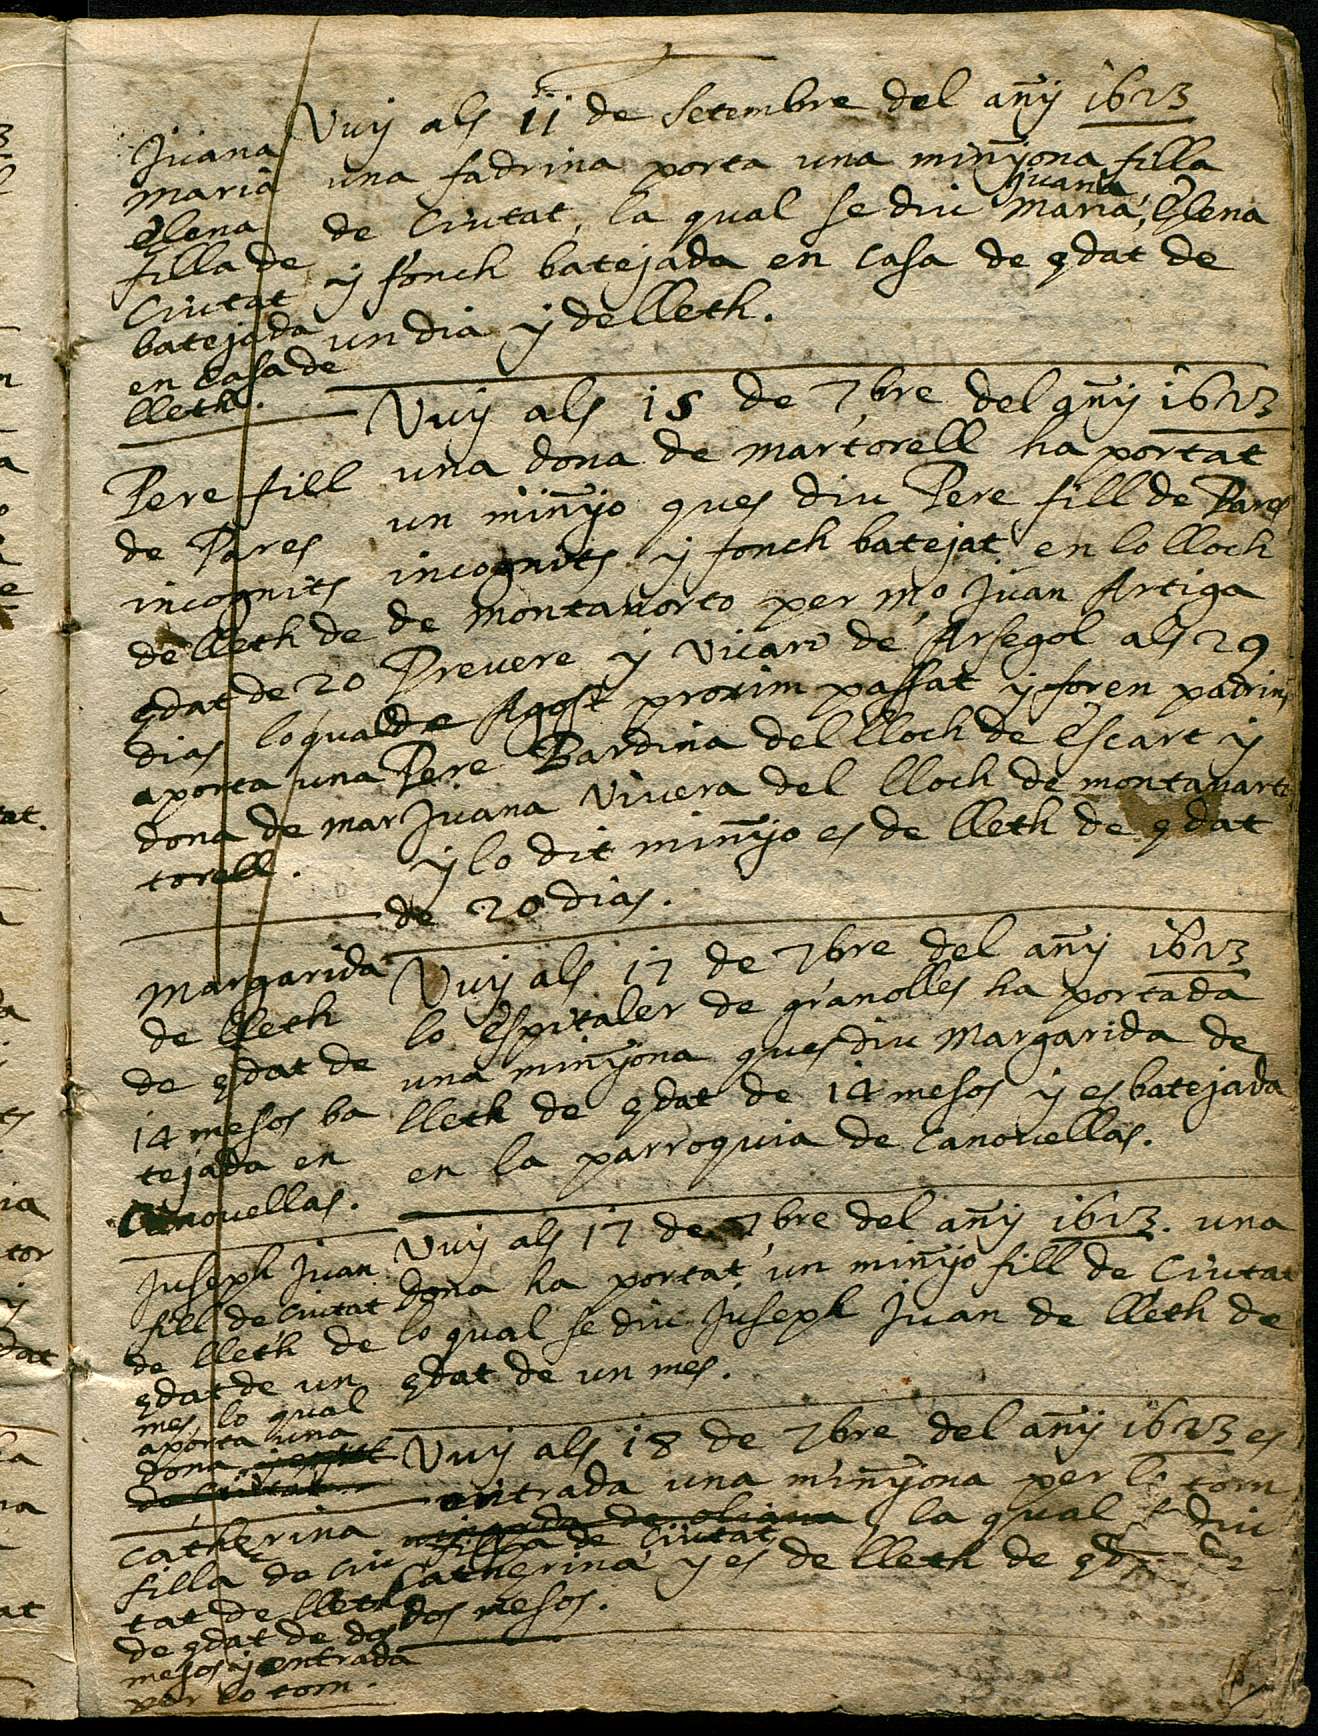 Juana
Maria
Elena
filla de
Ciutat
batejada
en casa de
lleth.
Vuy als 11 de setembre del añy 1623
una fadrina porta una miñyona filla
de Ciutat, la qual se diu Juana Maria, Elena
y fonch batejada en casa de edat de
un dia y de lleth.
Pere fill
de Pares
incognits
de lleth de
edat de 20
dias lo qual
aporta una
dona de mar
torell.
Vuy als 15 de 7bre del añy 1623
una dona de martorell ha portat
un miñyo ques diu Pere fill de Pares
incognits y fonch batejat en lo lloch
de montanorto per mº Juan Artiga
Prevere y vicari de Arsegol als 29
de Agost proxim passat y foren padrins
Pere Bardina del lloch de Escart y
Juana Vivera del lloch de montanarto
y lo dit miñyo es de lleth de edat
de 20 dias.
Margarida
de lleth
de edat de
14 mesos ba
tejada en
Canovellas.
Vuy als 17 de 7bre del añy 1623
lo espitaler de granolles ha portada
una miñyona ques diu Margarida de
lleth de edat de 14 mesos y es batejada
en la parroquia de Canovellas.
Juseph Juan
fill de Ciutat
de lleth de
edat de un
mes, lo qual
aporta una
dona
de Ciutat
Vuy als 17 de 7bre del añy 1623. una
dona ha portat un miñyo fill de Ciutat
lo qual se diu Juseph Juan de lleth de
edat de un mes.
Catherina
filla de Ciu
tat de lleth
de edat de dos
mesos y entrada
per lo torn.
Vuy als 18 de 7bre del añy 1623 es
entrada una miñyona per lo torn
filla de Ciutat, la qual se diu
Catherina y es de lleth de edat de
dos mesos.